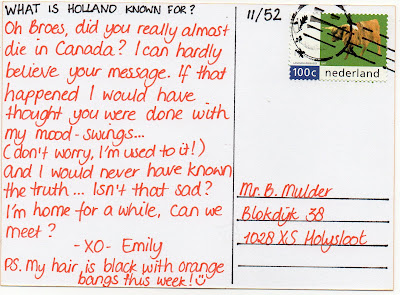 WHAT IS HOLLAND KNOWN FOR?
Oh Broes, did you really almost
die in Canada? I can hardly
believe your message. If that
happened I would have
thought you were done with
my mood-swings...
(don't worry, I'm used to it!)
and I would never have known
the truth... Isn't that sad?
I'm home for a while, can we
meet?
-XO- Emily
PS. My hair is black with orange
bangs this week!
11/52
100c nederland
Mr. B. Mulder
Blokdijk 38
1028 XS Holysloot